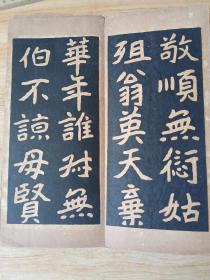 敬順無衍姑
殂翁英天棄
華年誰無
伯不諒母賢